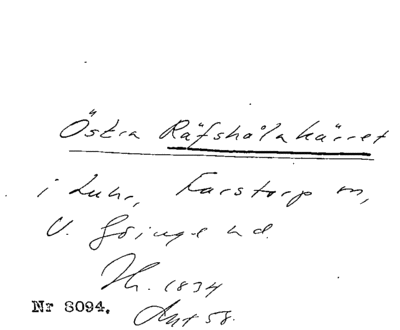 Östra Räfshålakärret
i Luhr, Farstorp sn,
V. Göinge hd.
Th. 1834
Nr 8094. Akt 58.